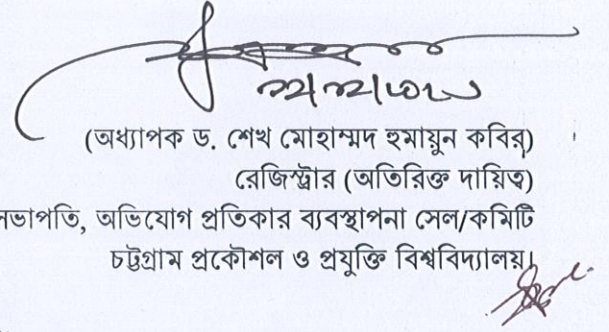 (অধ্যাপক ড. শেখ মোহাম্মদ হুমায়ুন কবির)
রেজিস্ট্রার (অতিরিক্ত দায়িত্ব)
সভাপতি, অভিযোগ প্রতিকার ব্যবস্থাপনা সেল/কমিটি
চট্টগ্রাম প্রকৌশল ও প্রযুক্তি বিশ্ববিদ্যালয়।